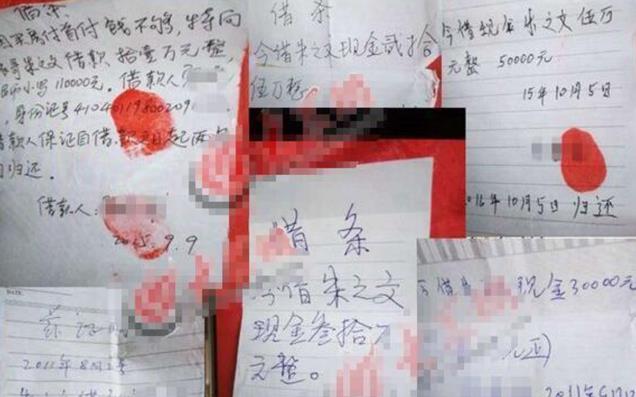 借条
因买房付首付钱不够,特向
朱之文借款拾壹万元整,
小写110000元。借款人
,身份证号410401198002091
借款人保证自借款之日起两
归还。
借款人:
2015.9.9
借条
今借朱之文现金贰拾
伍万整
今借现金朱之文伍万
元整 50000元
15年10月5日
2016年10月5日归还
借条
今借朱之文
现金叁拾万
元整。
今借 现金30000元
元正
2011年
2011年8月